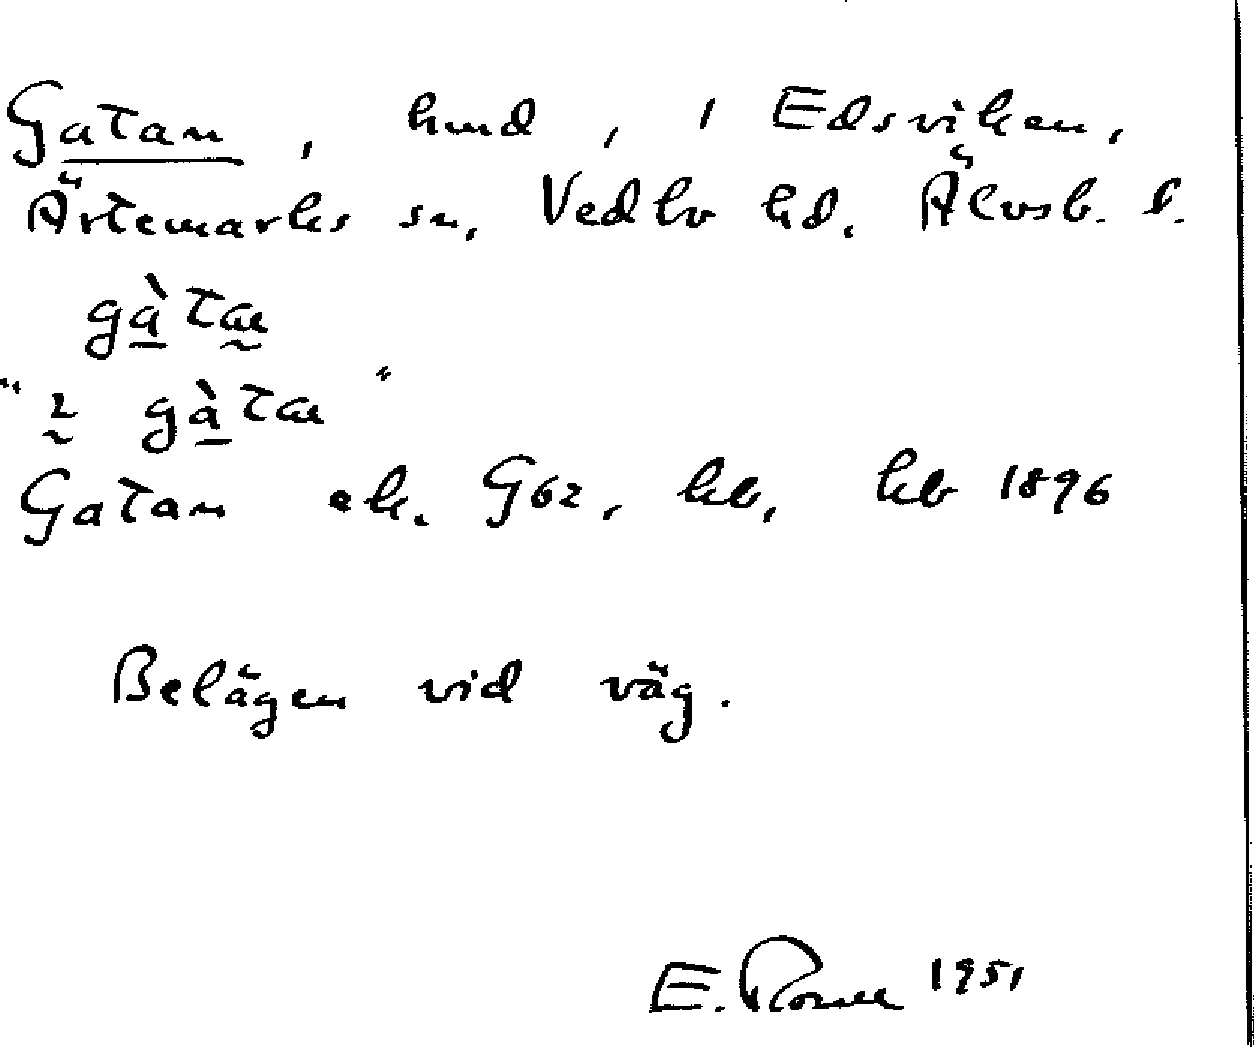 Gatan, hmd, i Edsviken,
Ärtemarks sn, Vedbo hd. Älvsb. l.
gàtaɴ
"ɩ gàtaɴ"
Gatan ek. G62, kb, hb 1896
Belägen vid väg.
E. 1951